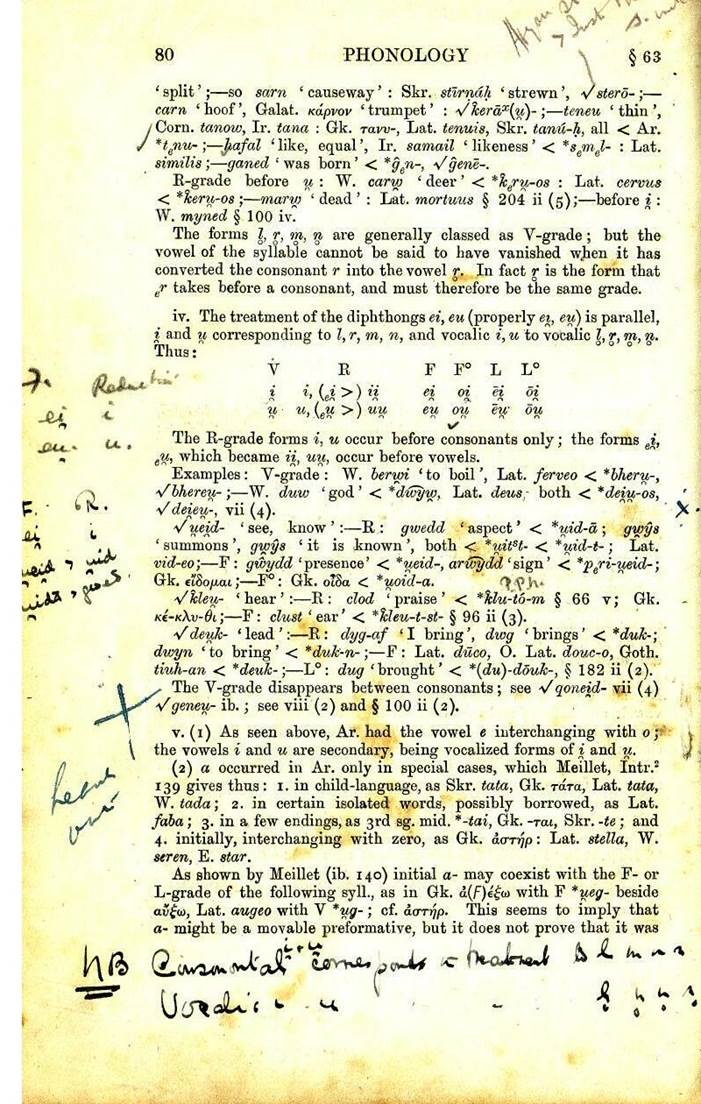 80 PHONOLOGY § 63
‘ split ’ ;—so sarn ‘ causeway ’ : Skr. stīrṇáḥ ‘ strewn ’, √sterō- ;—
carn ‘ hoof ’, Galat. κάρνον ‘ trumpet ’ : √k̂erāˣ(u̯)- ;—teneu ‘ thin ’,
Corn. tanow, Ir. tana : Gk. τανυ-, Lat. tenuis, Skr. tanú-ḥ, all < Ar.
*tₑnu- ;—hafal ‘ like, equal ’, Ir. samail ‘ likeness ’ < *sₑmₑl- : Lat.
similis ;—ganed ‘ was born ’ < *ĝₑn-, √ĝenē-.
R-grade before u̯ : W. carw̯ ‘ deer ’ < *k̂ₑru̯-os : Lat. cervus
< *k̂eru̯-os ;—marw̯ ‘ dead ’ : Lat. mortuus § 204 ii (5) ;—before i̯ :
W. myned § 100 iv.
The forms l̥, r̥, m̥, n̥ are generally classed as V-grade ; but the
vowel of the syllable cannot be said to have vanished when it has
converted the consonant r into the vowel r̥. In fact r̥ is the form that
ₑr takes before a consonant, and must therefore be the same grade.
iv. The treatment of the diphthongs ei, eu (properly ei̯, eu̯) is parallel,
i̯ and u̯ corresponding to l, r, m, n, and vocalic i, u to vocalic l̥, r̥, m̥, n̥.
Thus :
V R F F° L L°
i̯ i, (ₑi̯ >) ii̯ ei̯ oi̯ ēi̯ ōi̯
u̯ u, (ₑu̯ >) uu̯ eu̯ ou̯ ēu̯ ōu̯
Reduction
ei̯ i
eu̯ u.
The R-grade forms i, u occur before consonants only ; the forms ₑi̯,
ₑu̯, which became ii̯, uu̯, occur before vowels.
Examples : V-grade : W. berw̯i ‘ to boil ’, Lat. ferveo < *bheru̯-,
√bhereu̯- ;—W. duw ‘ god ’ < *dw͡yw̯, Lat. deus, both < *dei̯u̯-os,
√dei̯eu̯-, vii (4).
F. R.
ei̯ i
√u̯ei̯d- ‘ see, know ’ :—R : gwedd ‘ aspect ’ < *u̯id-ā ; gwŷs
‘ summons ’, gwŷs ‘ it is known ’, both < *u̯itˢt- < *u̯id-t- ; Lat.
vid-eo ;—F : gŵydd ‘ presence ’ < *u̯ei̯d-, arw͡ydd ‘ sign ’ < *pₑri-u̯ei̯d- ;
Gk. εἴδομαι ;—F° : Gk. οἶδα < *u̯oi̯d-a.
√k̂leu̯- ‘ hear ’ :—R : clod ‘ praise ’ < *k̂lu-tó-m § 66 v ; Gk.
κέ-κλυ-θι ;—F : clust ‘ ear ’ < *k̂leu-t-st- § 96 ii (3).
√deu̯k- ‘ lead ’ :—R : dyg-af ‘ I bring ’, dwg ‘ brings ’ < *duk- ;
dwyn ‘ to bring ’ < *duk-n- ;—F : Lat. dūco, O. Lat. douc-o, Goth.
tiuh-an < *deuk- ;—L° : dug ‘ brought ’ < *(du)-dōuk-, § 182 ii (2).
The V-grade disappears between consonants ; see √qonei̯d- vii (4)
√geneu̯- ib. ; see viii (2) and § 100 ii (2).
v. (1) As seen above, Ar. had the vowel e interchanging with o ;
the vowels i and u are secondary, being vocalized forms of i̯ and u̯.
(2) a occurred in Ar. only in special cases, which Meillet, Intr.²
139 gives thus : 1. in child-language, as Skr. tata, Gk. τάτα, Lat. tata,
W. tada ; 2. in certain isolated words, possibly borrowed, as Lat.
faba ; 3. in a few endings, as 3rd sg. mid. *-tai, Gk. -ται, Skr. -te ; and
4. initially, interchanging with zero, as Gk. ἀστήρ : Lat. stella, W.
seren, E. star.
As shown by Meillet (ib. 140) initial a- may coexist with the F- or
L-grade of the following syll., as in Gk. ἀ(ϝ)έξω with F *u̯eg- beside
αὔξω, Lat. augeo with V *u̯g- ; cf. ἀστήρ. This seems to imply that
a- might be a movable preformative, but it does not prove that it was
NB Consonantal i + u corresponds treatment l m n r
l̥ m̥ n̥ r̥